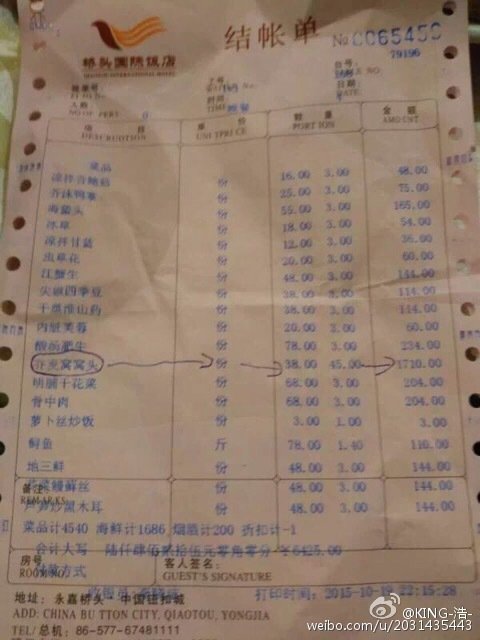 桥头国际饭店
QIAOTOU INTERNATIONAL HOTEL
结帐单
No 0065450
79196
台号:
TABLE NO:
日期:
DATE:
时间:
TIME:
人数:
NO OF PERS: 0
项 目 单 价 数 量 金 额
DESCRIPTION UNITPRICE PORTION AMOUNT
菜品
份 16.00 3.00 48.00
份 25.00 3.00 75.00
海蜇头 份 55.00 3.00 165.00
冰草 份 18.00 3.00 54.00
凉拌甘蓝 份 12.00 3.00 36.00
虫草花 份 20.00 3.00 60.00
江蟹生 份 48.00 3.00 144.00
尖椒四季豆 份 38.00 3.00 114.00
干煸淮山药 份 38.00 3.00 114.00
份 20.00 3.00 60.00
份 78.00 3.00 234.00
窝窝头 份 38.00 45.00 1710.00
干花菜 份 68.00 3.00 204.00
骨中肉 份 68.00 3.00 204.00
萝卜丝炒饭 份 3.00 1.00 3.00
鲟鱼 斤 78.00 1.40 110.00
地三鲜 份 48.00 3.00 144.00
鳗鲜丝 份 48.00 3.00 144.00
炒黑木耳 份 48.00 3.00 144.00
备注:
REMARKS:
菜品计4540 海鲜计1686 烟酒计200 折扣计-1
合计大写 陆仟肆佰贰拾伍元零角零分 ￥6425.00
房号:
ROOM NO:
客人签名:
GUEST'S SIGNATURE
收银员
打印时间: 2015-10-18 22:15:28
地址: 永嘉桥头·中国钮扣城
ADD: CHINA BU TTON CITY, QIAOTOU, YONGJIA
TEL/总机: 86-577-67481111
@KING-浩-
weibo.com/u/2031435443